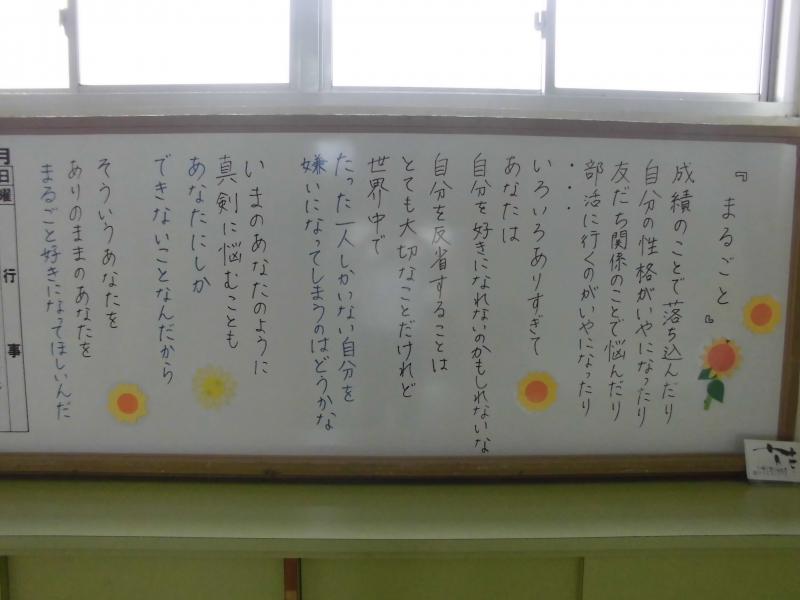 『まるごと』
成績のことで落ち込んだり
自分の性格がいやになったり
友だち関係のことで悩んだり
部活に行くのがいやになったり
・・・
いろいろありすぎて
あなたは
自分を好きになれないのかもしれないな
自分を反省することは
とても大切なことだけれど
世界中で
たった一人しかいない自分を
嫌いになってしまうのはどうかな
いまのあなたのように
真剣に悩むことも
あなたにしか
できないことなんだから
そういうあなたを
ありのままのあなたを
まるごと好きになってほしいんだ
月
日
曜
行事